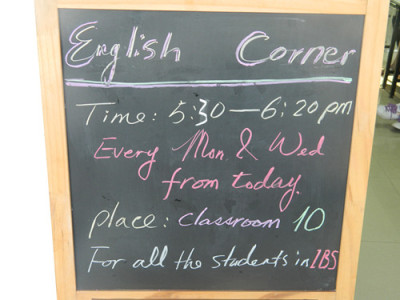 English Corner
Time: 5:30—6:20pm
Every Mon & Wed
from today.
place: classroom 10
For all the students in IBS